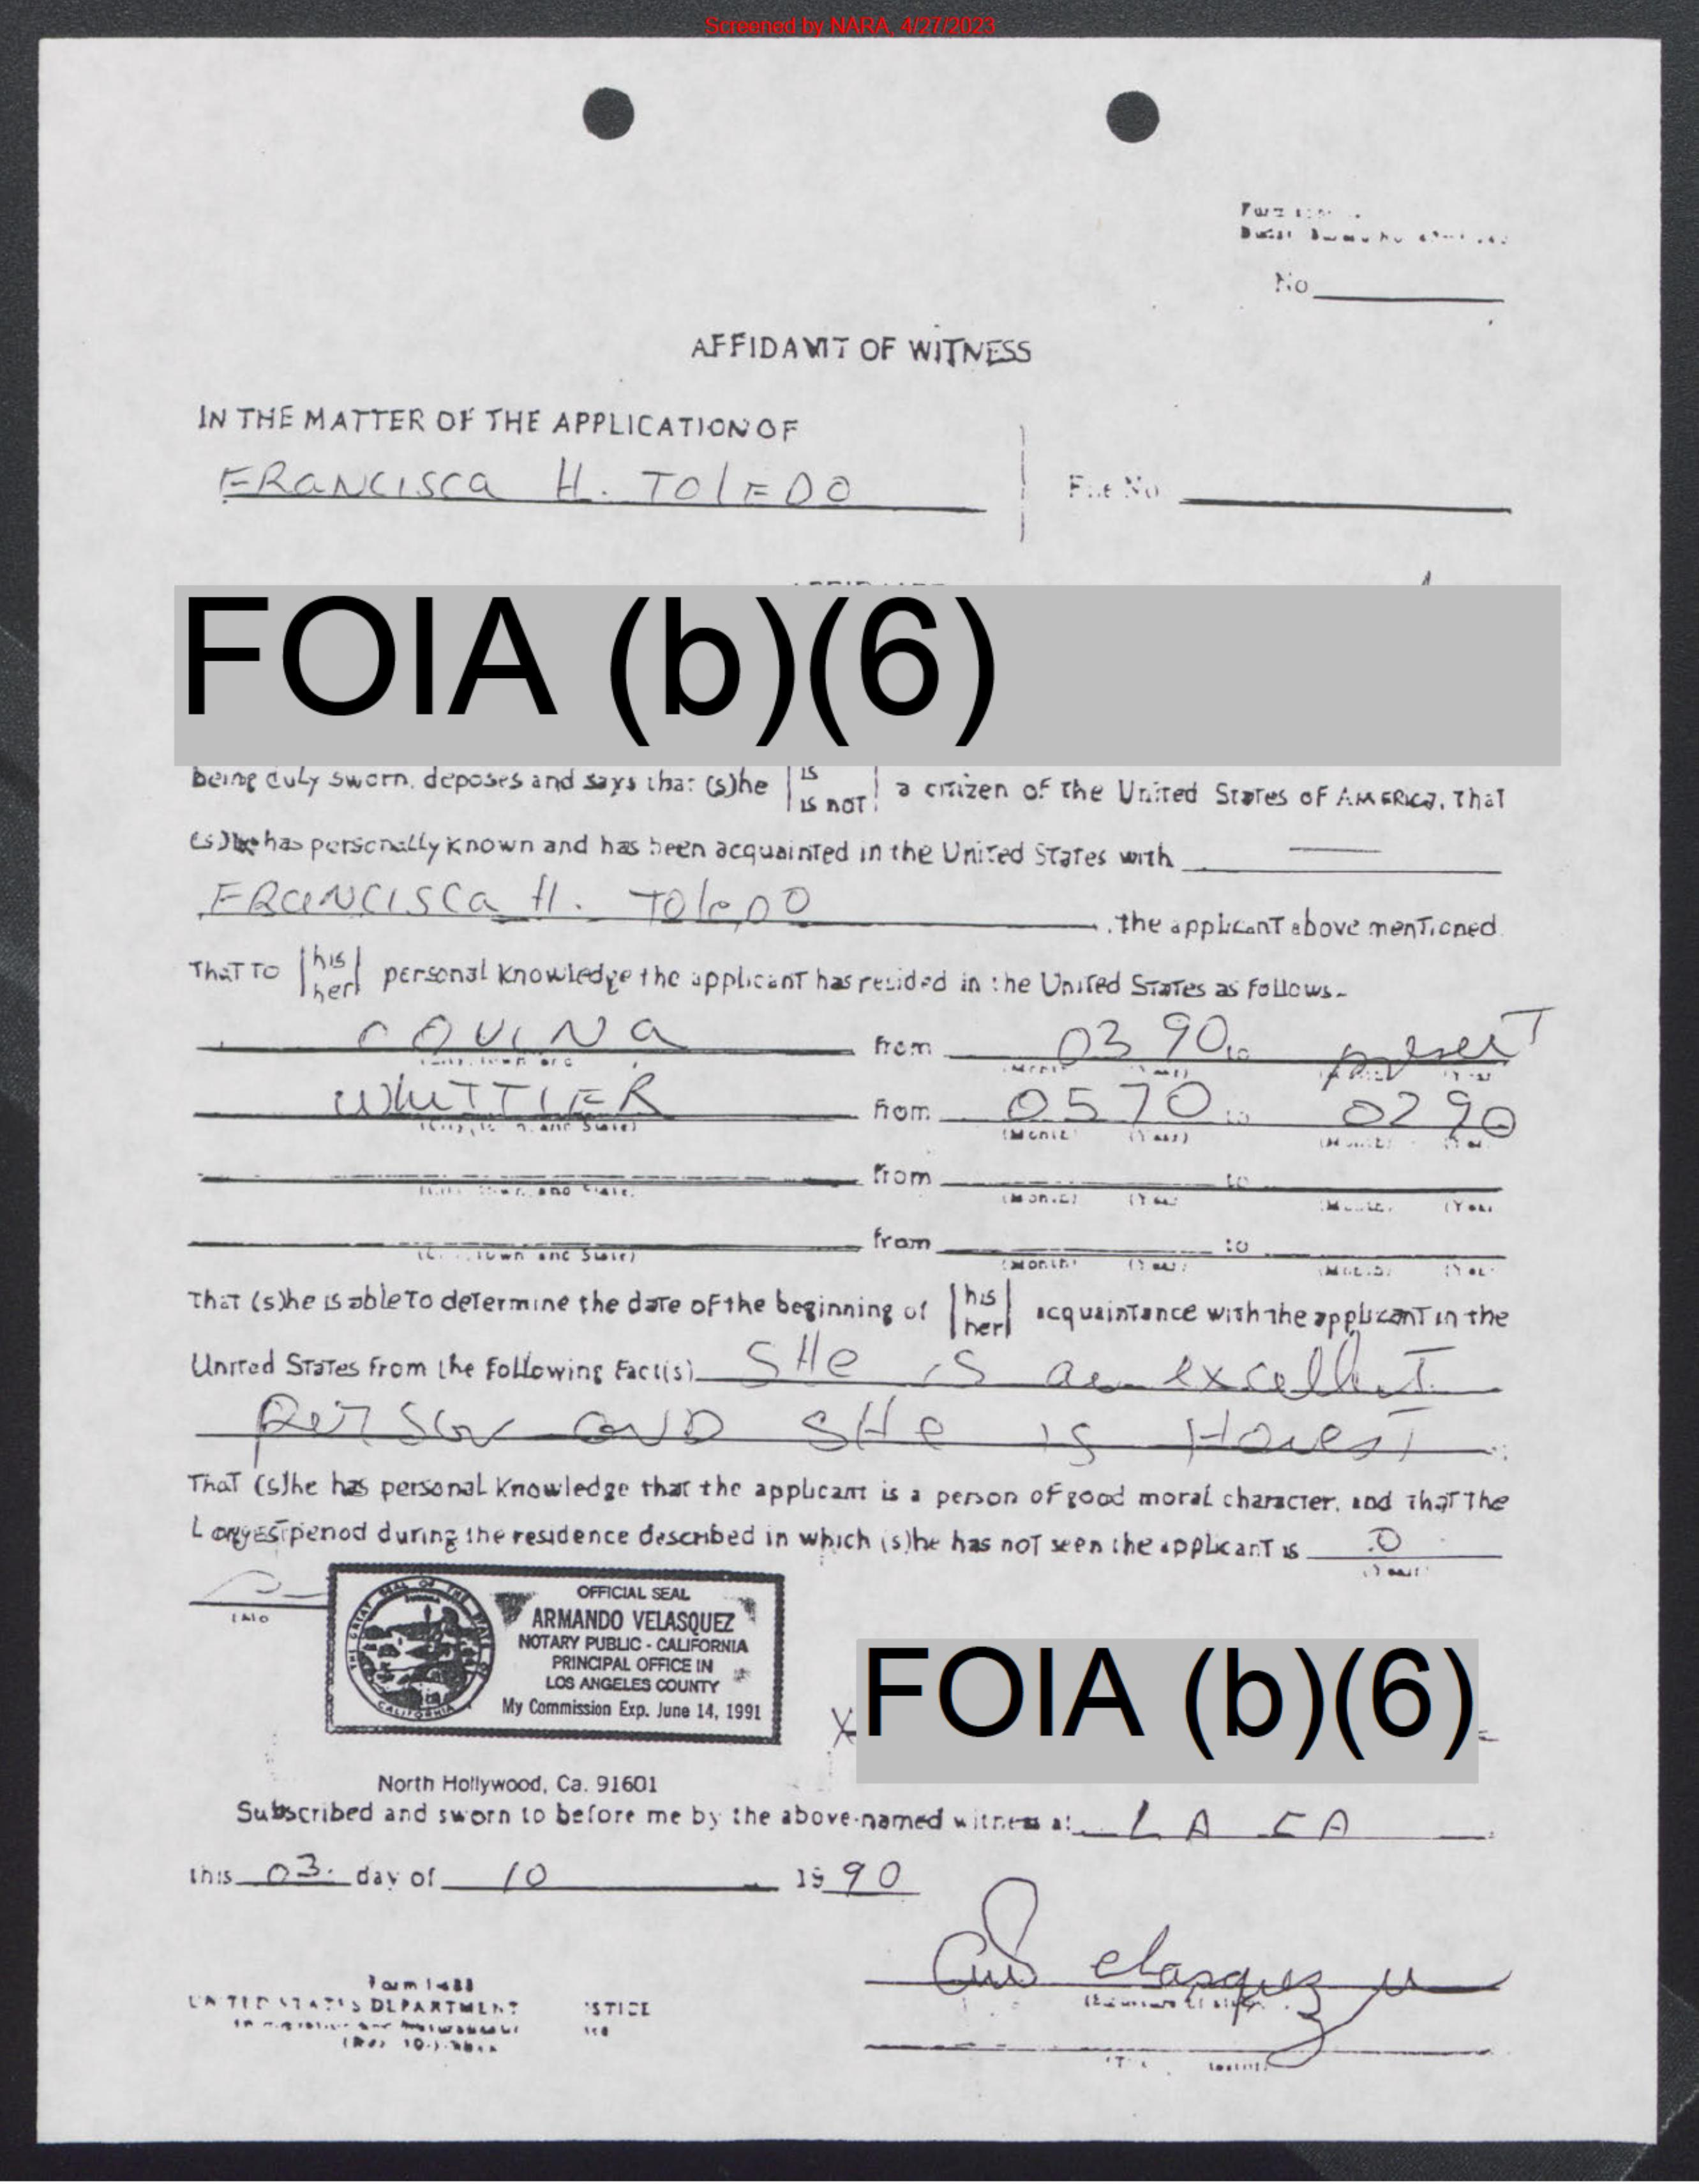 Screened by NARA, 4/27/2023
No
AFFIDAVIT OF WITNESS
IN THE MATTER OF THE APPLICATION OF
FRANCISCA H. TOLEDO
File No.
FOIA (b)(6)
being duly sworn, deposes and says that (s)he is
is not a citizen of the United States of AMERICA, that
(s)he has personally known and has been acquainted in the United States with
FRANCISCA H. Toledo , the applicant above mentioned
That to his
her personal knowledge the applicant has resided in the United States as follows-
COVINA from 03 90 to present
WHITTIER from 05 70 to 02 90
(City, Town, and State) (Month) (Year) (Month) (Year)
from to
(City, Town, and State) (Month) (Year) (Month) (Year)
from to
(City, Town and State) (Month) (Year) (Month) (Year)
That (s)he is able to determine the date of the beginning of his
her acquaintance with the applicant in the
United States from the following fact(s) SHe is an excellent
Person AND SHe is Honest
That (s)he has personal knowledge that the applicant is a person of good moral character, and that the
Longest period during the residence described in which (s)he has not seen the applicant is 0
OFFICIAL SEAL
ARMANDO VELASQUEZ
NOTARY PUBLIC - CALIFORNIA
PRINCIPAL OFFICE IN
LOS ANGELES COUNTY
My Commission Exp. June 14, 1991
X FOIA (b)(6)
North Hollywood, Ca. 91601
Subscribed and sworn to before me by the above-named witness at LA CA
this 03 day of 10 19 90
elasquez
Form I-488
UNITED STATES DEPARTMENT STICE